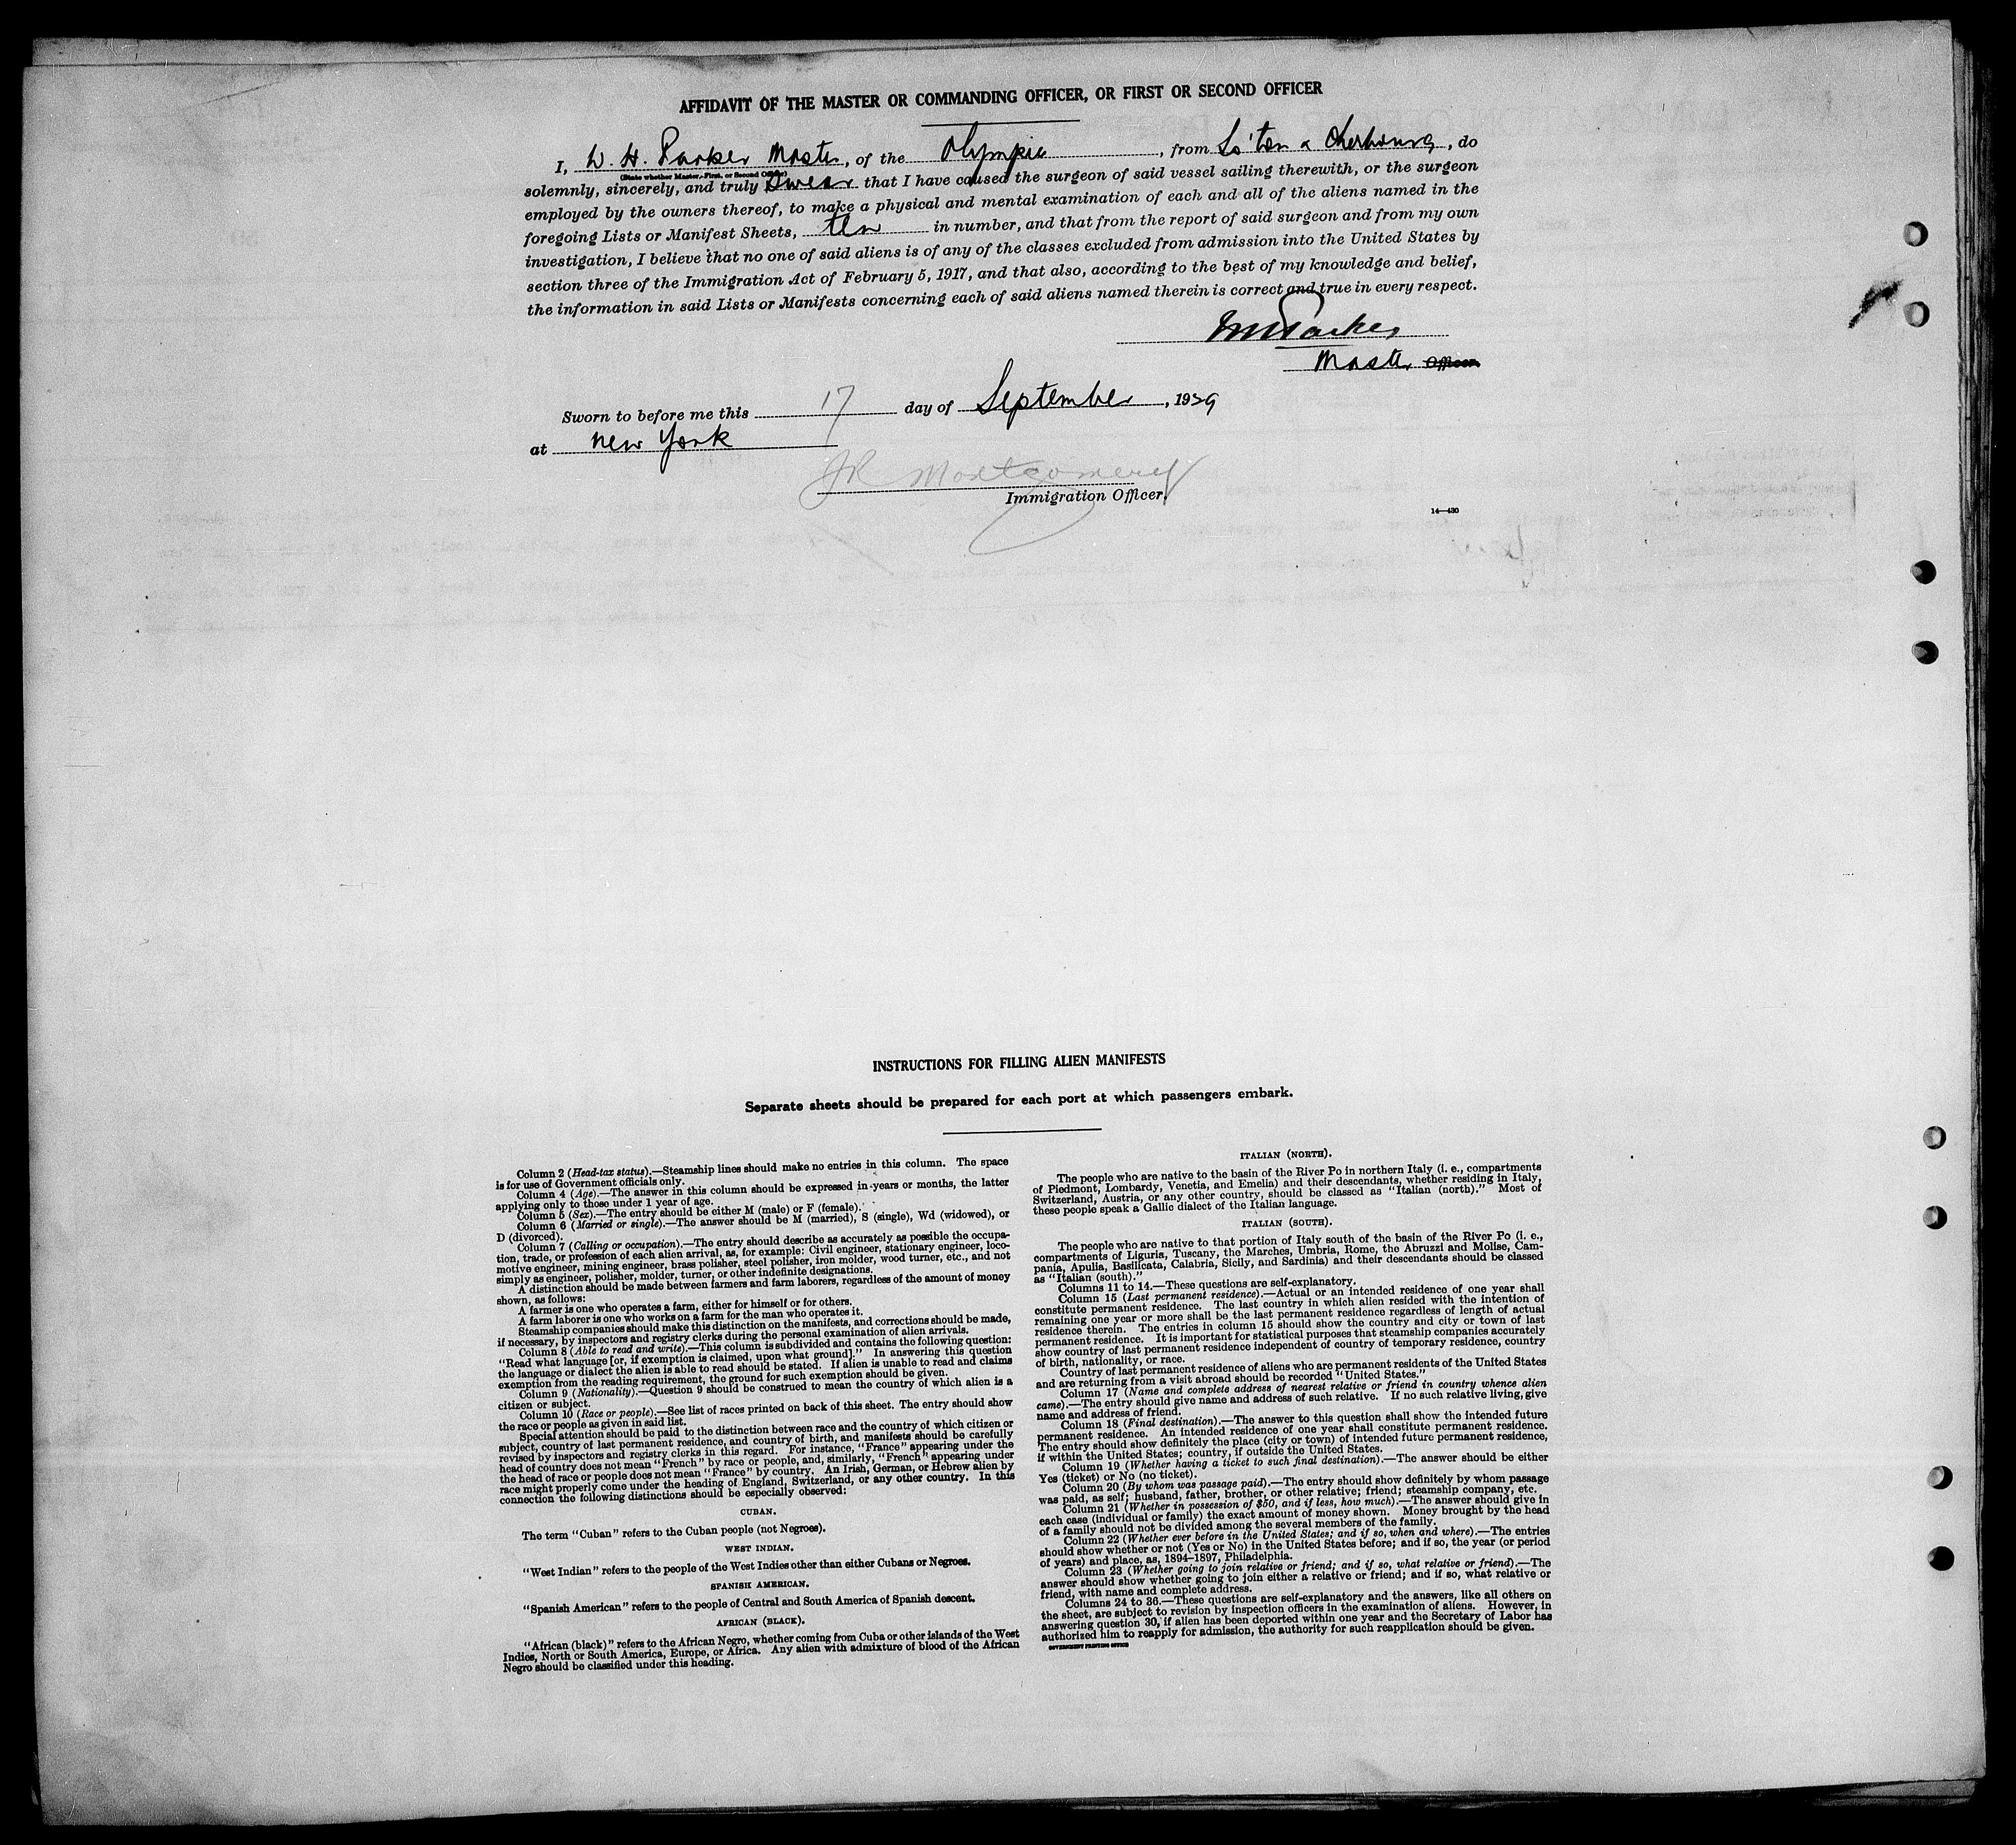 AFFIDAVIT OF THE MASTER OR COMMANDING OFFICER, OR FIRST OR SECOND OFFICER
I, W. H. Parker Master, of the Olympic, from So'ton & Cherbourg, do
(State whether Master, First, or Second Officer)
solemnly, sincerely, and truly swear that I have caused the surgeon of said vessel sailing therewith, or the surgeon
employed by the owners thereof, to make a physical and mental examination of each and all of the aliens named in the
foregoing Lists or Manifest Sheets, ten in number, and that from the report of said surgeon and from my own
investigation, I believe that no one of said aliens is of any of the classes excluded from admission into the United States by
section three of the Immigration Act of February 5, 1917, and that also, according to the best of my knowledge and belief,
the information in said Lists or Manifests concerning each of said aliens named therein is correct and true in every respect.
WH Parker
Master Officer.
Sworn to before me this 17 day of September, 1929
at New York
JR Montgomery
Immigration Officer.
14—430
INSTRUCTIONS FOR FILLING ALIEN MANIFESTS
Separate sheets should be prepared for each port at which passengers embark.
Column 2 (Head-tax status).—Steamship lines should make no entries in this column. The space
is for use of Government officials only.
Column 4 (Age).—The answer in this column should be expressed in years or months, the latter
applying only to those under 1 year of age.
Column 5 (Sex).—The entry should be either M (male) or F (female).
Column 6 (Married or single).—The answer should be M (married), S (single), Wd (widowed), or
D (divorced).
Column 7 (Calling or occupation).—The entry should describe as accurately as possible the occupa-
tion, trade, or profession of each alien arrival, as, for example: Civil engineer, stationary engineer, loco-
motive engineer, mining engineer, brass polisher, steel polisher, iron molder, wood turner, etc., and not
simply as engineer, polisher, molder, turner, or other indefinite designations.
A distinction should be made between farmers and farm laborers, regardless of the amount of money
shown, as follows:
A farmer is one who operates a farm, either for himself or for others.
A farm laborer is one who works on a farm for the man who operates it.
Steamship companies should make this distinction on the manifests, and corrections should be made,
if necessary, by inspectors and registry clerks during the personal examination of alien arrivals.
Column 8 (Able to read and write).—This column is subdivided and contains the following question:
"Read what language [or, if exemption is claimed, upon what ground]." In answering this question
the language or dialect the alien is able to read should be stated. If alien is unable to read and claims
exemption from the reading requirement, the ground for such exemption should be given.
Column 9 (Nationality).—Question 9 should be construed to mean the country of which alien is a
citizen or subject.
Column 10 (Race or people).—See list of races printed on back of this sheet. The entry should show
the race or people as given in said list.
Special attention should be paid to the distinction between race and the country of which citizen or
subject, country of last permanent residence, and country of birth, and manifests should be carefully
revised by inspectors and registry clerks in this regard. For instance, "France" appearing under the
head of country does not mean "French" by race or people, and, similarly, "French" appearing under
the head of race or people does not mean "France" by country. An Irish, German, or Hebrew alien by
race might properly come under the heading of England, Switzerland, or any other country. In this
connection the following distinctions should be especially observed:
CUBAN.
The term "Cuban" refers to the Cuban people (not Negroes).
WEST INDIAN.
"West Indian" refers to the people of the West Indies other than either Cubans or Negroes.
SPANISH AMERICAN.
"Spanish American" refers to the people of Central and South America of Spanish descent.
AFRICAN (BLACK).
"African (black)" refers to the African Negro, whether coming from Cuba or other islands of the West
Indies, North or South America, Europe, or Africa. Any alien with admixture of blood of the African
Negro should be classified under this heading.
ITALIAN (NORTH).
The people who are native to the basin of the River Po in northern Italy (i. e., compartments
of Piedmont, Lombardy, Venetia, and Emelia) and their descendants, whether residing in Italy,
Switzerland, Austria, or any other country, should be classed as "Italian (north)." Most of
these people speak a Gallic dialect of the Italian language.
ITALIAN (SOUTH).
The people who are native to that portion of Italy south of the basin of the River Po (i. e.,
compartments of Liguria, Tuscany, the Marches, Umbria, Rome, the Abruzzi and Molise, Cam-
pania, Apulia, Basilicata, Calabria, Sicily, and Sardinia) and their descendants should be classed
as "Italian (south)."
Columns 11 to 14.—These questions are self-explanatory.
Column 15 (Last permanent residence).—Actual or an intended residence of one year shall
constitute permanent residence. The last country in which alien resided with the intention of
remaining one year or more shall be the last permanent residence regardless of length of actual
residence therein. The entries in column 15 should show the country and city or town of last
permanent residence. It is important for statistical purposes that steamship companies accurately
show country of last permanent residence independent of country of temporary residence, country
of birth, nationality, or race.
Country of last permanent residence of aliens who are permanent residents of the United States
and are returning from a visit abroad should be recorded "United States."
Column 17 (Name and complete address of nearest relative or friend in country whence alien
came).—The entry should give name and address of such relative. If no such relative living, give
name and address of friend.
Column 18 (Final destination).—The answer to this question shall show the intended future
permanent residence. An intended residence of one year shall constitute permanent residence.
The entry should show definitely the place (city or town) of intended future permanent residence,
if within the United States; country, if outside the United States.
Column 19 (Whether having a ticket to such final destination).—The answer should be either
Yes (ticket) or No (no ticket).
Column 20 (By whom was passage paid).—The entry should show definitely by whom passage
was paid, as self; husband, father, brother, or other relative; friend; steamship company, etc.
Column 21 (Whether in possession of $50, and if less, how much).—The answer should give in
each case (individual or family) the exact amount of money shown. Money brought by the head
of a family should not be divided among the several members of the family.
Column 22 (Whether ever before in the United States; and if so, when and where).—The entries
should show whether or not (Yes or No) in the United States before; and if so, the year (or period
of years) and place, as, 1894–1897, Philadelphia.
Column 23 (Whether going to join relative or friend; and if so, what relative or friend).—The
answer should show whether going to join either a relative or friend; and if so, what relative or
friend, with name and complete address.
Columns 24 to 36.—These questions are self-explanatory and the answers, like all others on
the sheet, are subject to revision by inspection officers in the examination of aliens. However, in
answering question 30, if alien has been deported within one year and the Secretary of Labor has
authorized him to reapply for admission, the authority for such reapplication should be given.
GOVERNMENT PRINTING OFFICE